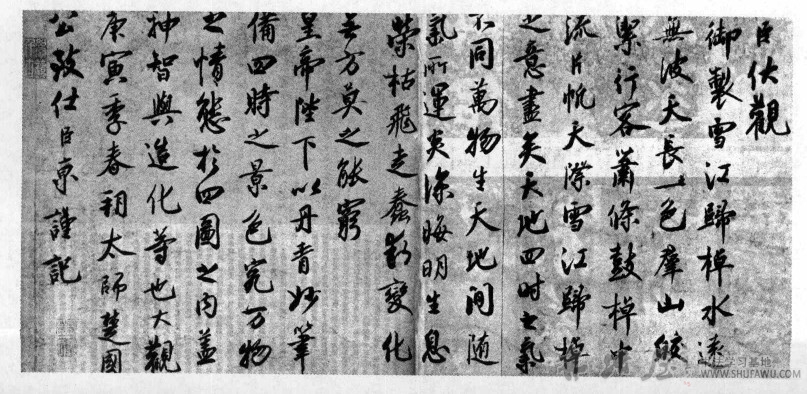 臣伏觀
御製雪江歸棹水遠
無波天長一色羣山皎
潔行客蕭條鼓棹中
流片帆天際雪江歸棹
之意盡矣天地四时之氣
不同萬物生天地间随
氣所運炎涼晦明生息
榮枯飛走蠢動變化
無方莫之能窮
皇帝陛下以丹青妙筆
備四時之景色究万物
之情態於四圖之内蓋
神智與造化等也大觀
庚寅季春朔太師楚國
公致仕臣京謹記
书法学习基地
WWW.SHUFAWU.COM